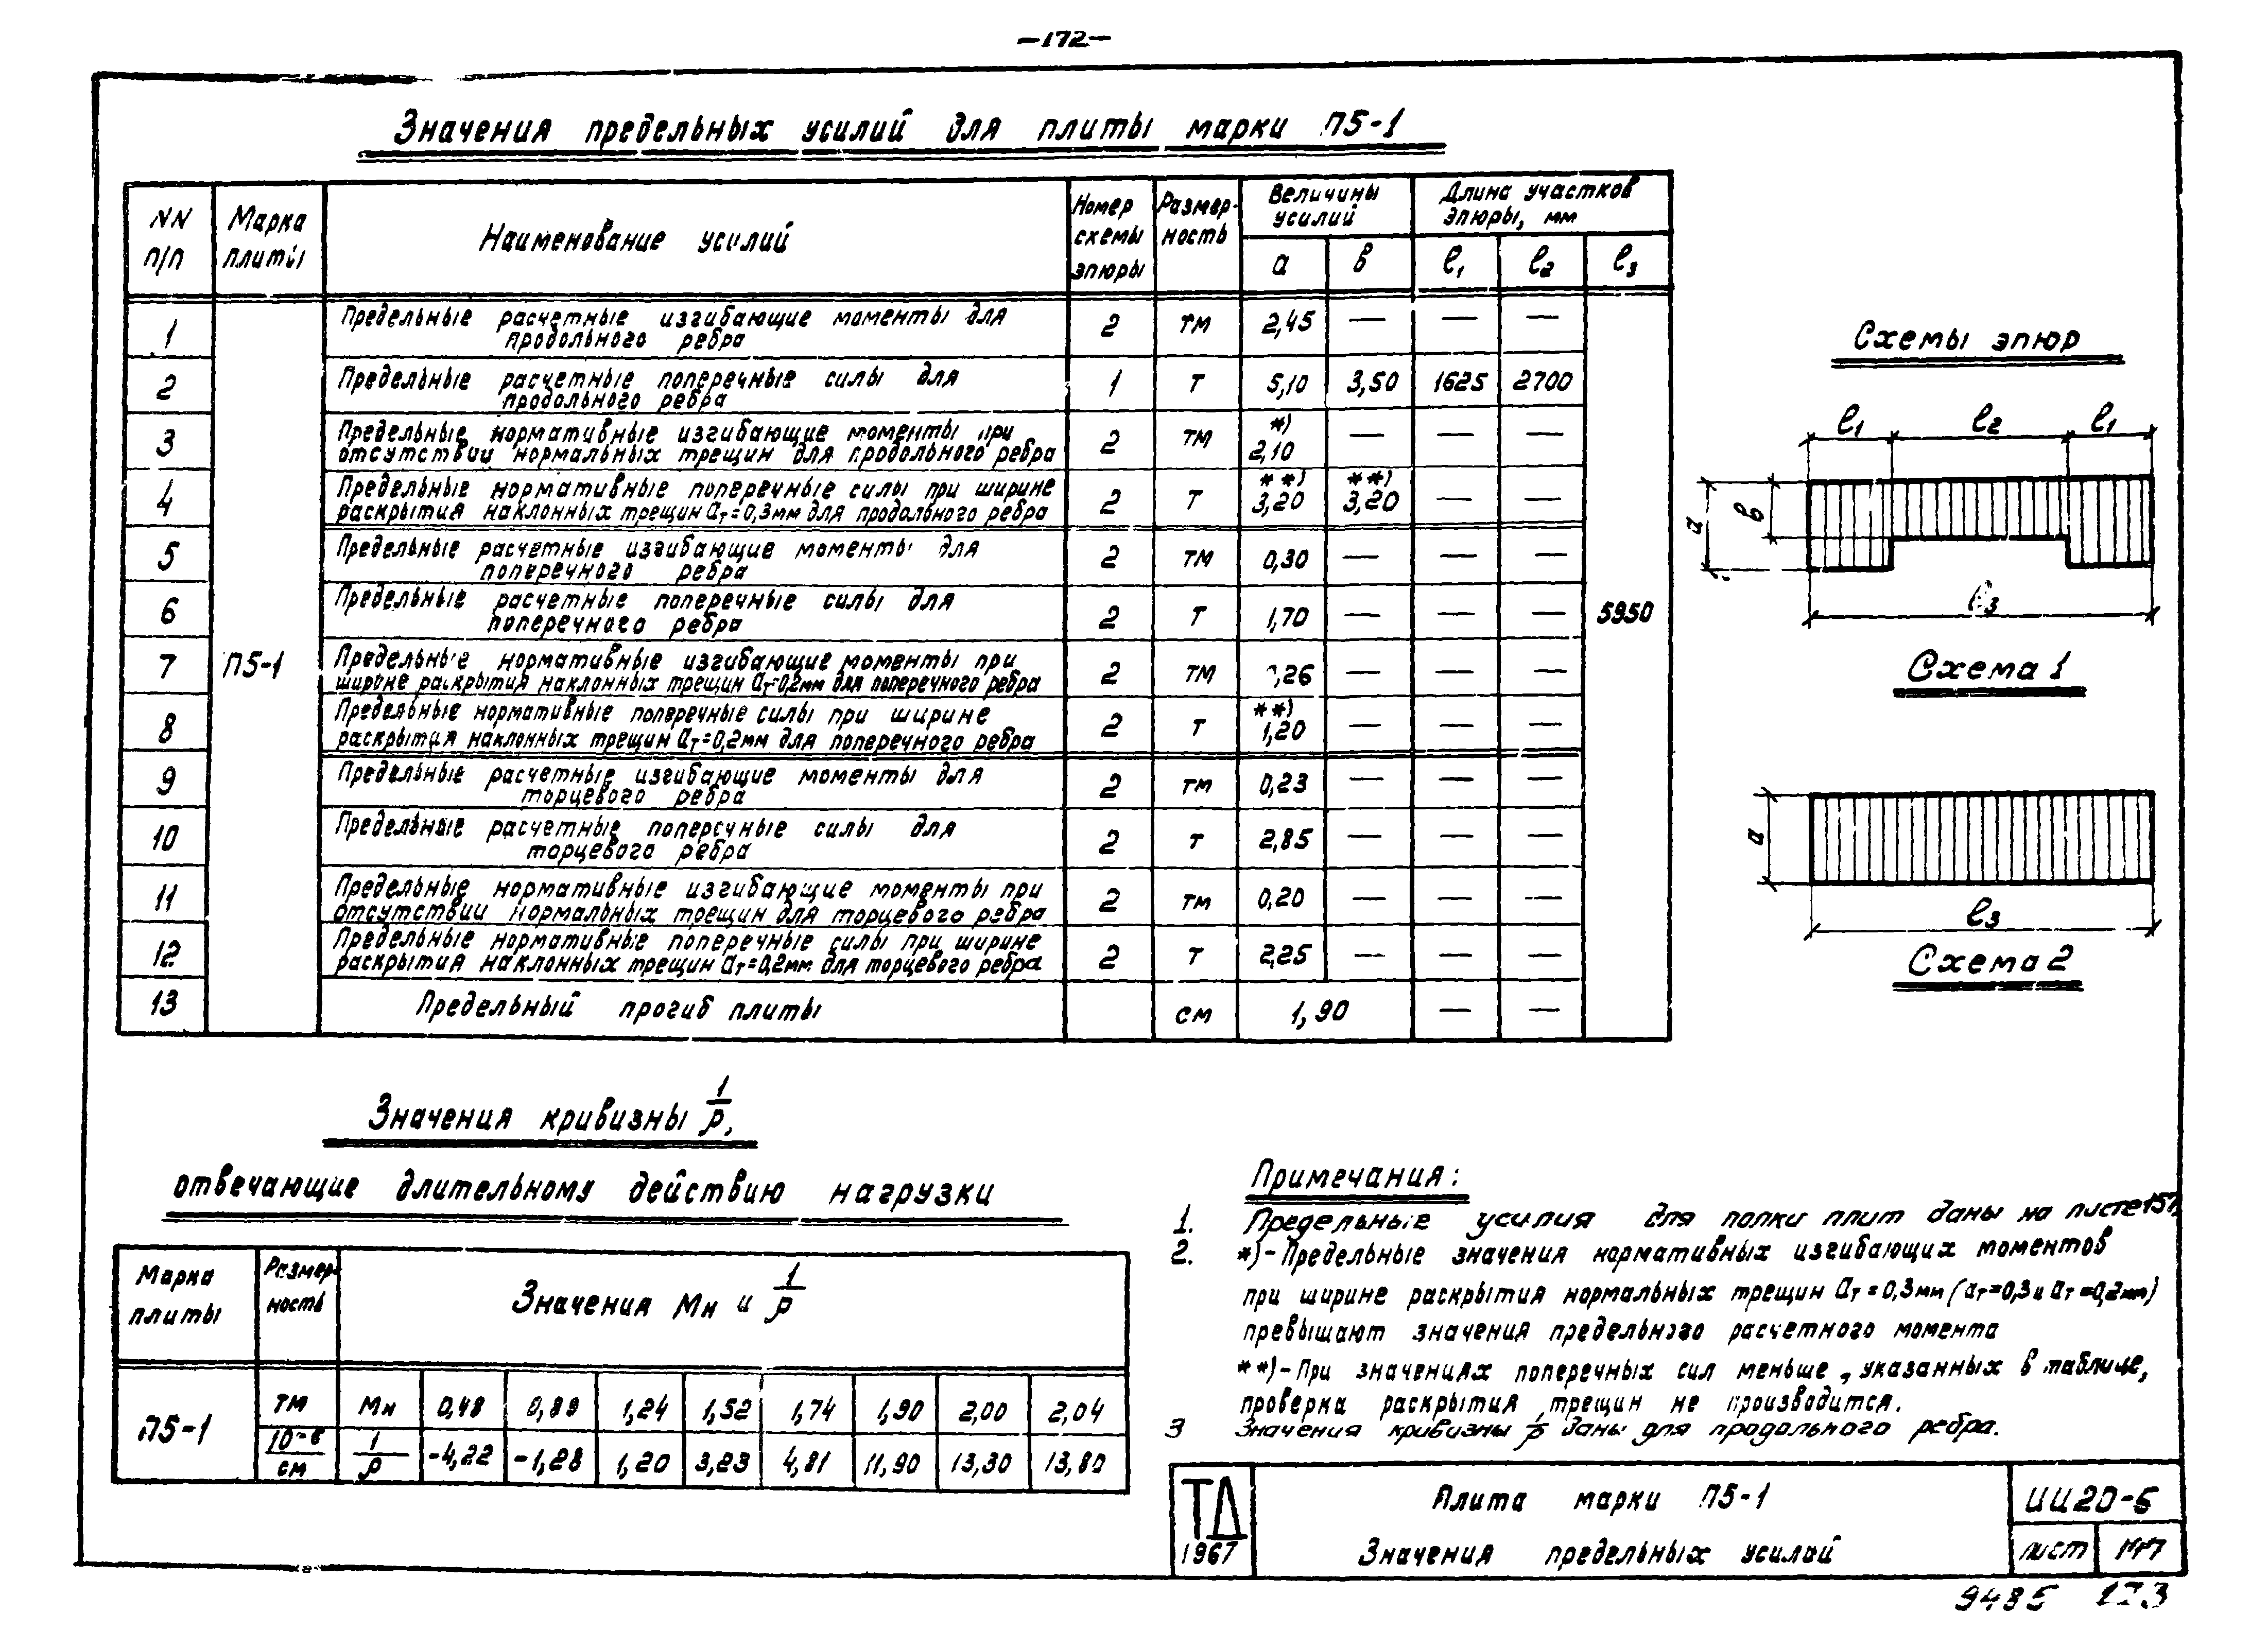 —172—
Значения предельных усилий для плиты марки П5-1
NN п/п Марка плиты Наименование усилий Номер схемы эпюры Размерность Величины усилий Длина участков эпюры, мм
а в ℓ1 ℓ2 ℓ3
1 Предельные расчетные изгибающие моменты для продольного ребра 2 тм 2,45 — — —
2 Предельные расчетные поперечные силы для продольного ребра 1 т 5,10 3,50 1625 2700
3 Предельные нормативные изгибающие моменты при отсутствии нормальных трещин для продольного ребра 2 тм *) 2,10 — — —
4 Предельные нормативные поперечные силы при ширине раскрытия наклонных трещин ат=0,3мм для продольного ребра 2 т **) 3,20 **) 3,20 — —
5 Предельные расчетные изгибающие моменты для поперечного ребра 2 тм 0,30 — — —
6 Предельные расчетные поперечные силы для поперечного ребра 2 т 1,70 — — — 5950
7 П5-1 Предельные нормативные изгибающие моменты при ширине раскрытия наклонных трещин ат=0,2мм для поперечного ребра 2 тм ,26 — — —
8 Предельные нормативные поперечные силы при ширине раскрытия наклонных трещин ат=0,2мм для поперечного ребра 2 т **) 1,20 — — —
9 Предельные расчетные изгибающие моменты для торцевого ребра 2 тм 0,23 — — —
10 Предельные расчетные поперечные силы для торцевого ребра 2 т 2,85 — — —
11 Предельные нормативные изгибающие моменты при отсутствии нормальных трещин для торцевого ребра 2 тм 0,20 — — —
12 Предельные нормативные поперечные силы при ширине раскрытия наклонных трещин ат=0,2мм для торцевого ребра 2 т 2,25 — — —
13 Предельный прогиб плиты см 1,90 — —
Схемы эпюр
ℓ1 ℓ2 ℓ1
а в
ℓ3
Схема 1
а
ℓ3
Схема 2
Значения кривизны 1/ρ,
отвечающие длительному действию нагрузки
Марка плиты Размерность Значения Мн и 1/ρ
П5-1 тм Мн 0,48 0,89 1,24 1,52 1,74 1,90 2,00 2,04
10-6/см 1/ρ -4,22 -1,28 1,20 3,23 4,81 11,90 13,30 13,80
Примечания:
1. Предельные усилия для полки плит даны на листе 157.
2. *)-Предельные значения нормативных изгибающих моментов
при ширине раскрытия нормальных трещин ат=0,3мм (ат=0,3 и ат=0,2мм)
превышают значения предельного расчетного момента
**)-При значениях поперечных сил меньше, указанных в таблице,
проверка раскрытия трещин не производится.
3 Значения кривизны 1/ρ даны для продольного ребра.
ТД
1967
Плита марки П5-1
Значения предельных усилий
ИИ20-6
лист
9485 173